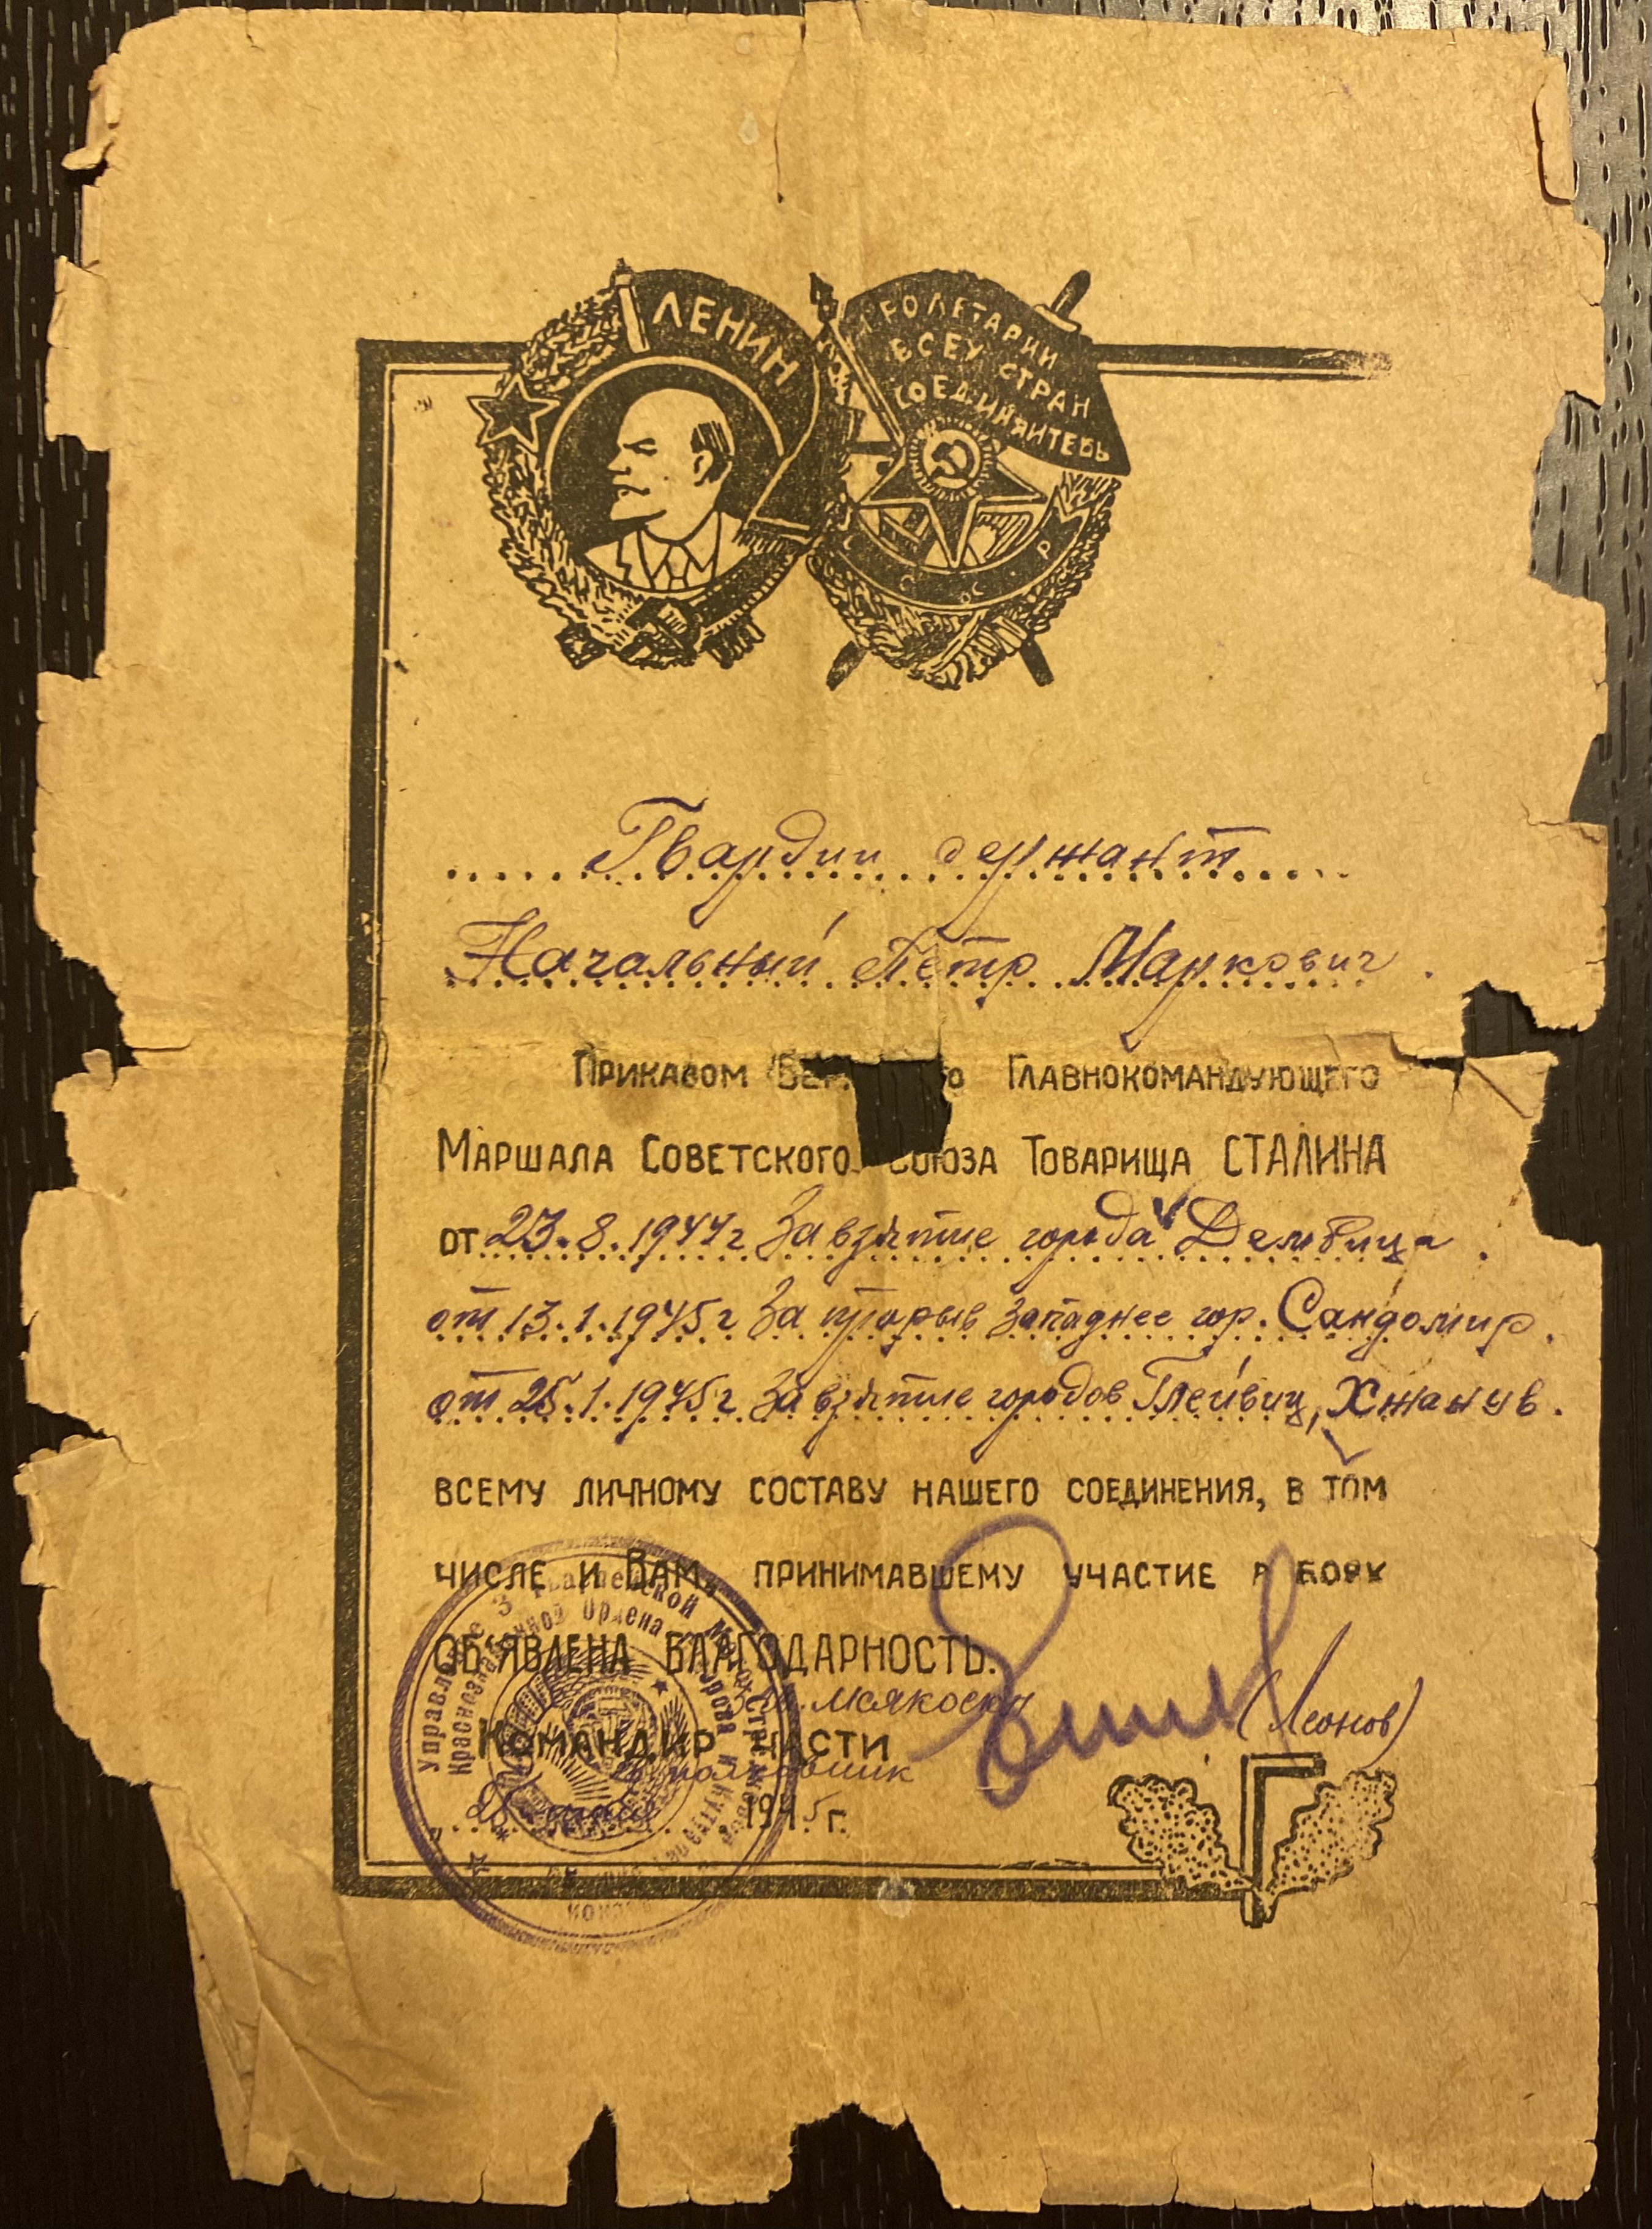 ЛЕНИН
ПРОЛЕТАРИИ
ВСЕХ СТРАН
СОЕДИНЯЙТЕСЬ
С С С Р
Гвардии сержант
Начальный Пётр Маркович
Приказом Главнокомандующего
Маршала Советского Союза Товарища СТАЛИНА
от 23.8.1944г За взятие города Дембица.
от 13.1.1945г За прорыв западнее гор. Сандомир.
от 25.1.1945г За взятие городов Глейвиц, Хжанув.
всему личному составу нашего соединения, в том
числе и Вам, принимавшему участие в боях
ОБ'ЯВЛЕНА БЛАГОДАРНОСТЬ.
Командир части (Леонов)
полковник
1945 г.
Управление 3 Гвардейской
Краснознаменной Ордена